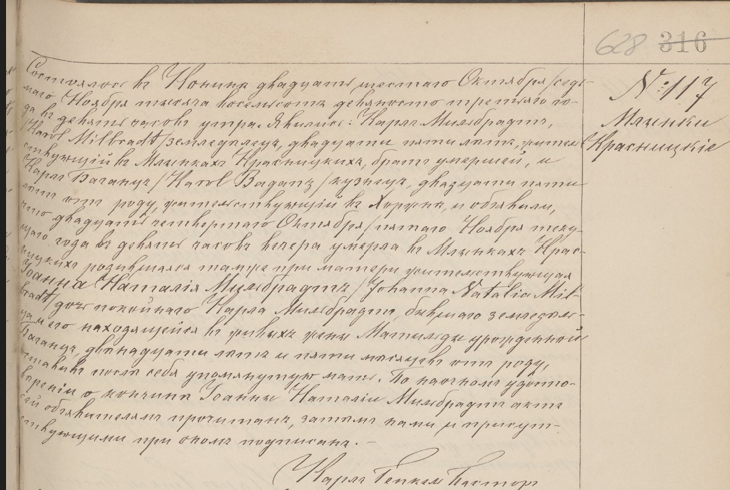 628 316
№ 117
Млынки
Красницкіе
Состоялось въ Конинѣ двадцать шестаго Октября /седь-
маго Ноября тысяча восемьсотъ девяносто третьяго го-
да въ девять часовъ утра. Явились: Карлъ Мильбрадтъ,
/Karol Milbradt/ земледѣлецъ, двадцати пяти лѣтъ, житель-
ствующій въ Млынкахъ Красницкихъ, братъ умершей, и
Карлъ Баганцъ /Karol Baganz/ кузнецъ, двадцати пяти
лѣтъ отъ роду, жительствующій въ, и объявили,
что двадцать четвертаго Октября /пятаго Ноября теку-
щаго года въ девять часовъ вечера умерла въ Млынкахъ Крас-
ницкихъ родившаяся тамже при матери жительствующая
Іоанна Наталія Мильбрадтъ /Johanna Natalia Mil-
bradt/ дочь покойнаго Карла Мильбрадтъ, бывшаго земледѣль-
ца и его находящейся въ живыхъ жены Матильды урожденной
Баганцъ, двѣнадцати лѣтъ и пяти мѣсяцевъ отъ роду,
оставивъ послѣ себя упомянутую мать. По наочномъ удосто-
вѣреніи о кончинѣ Іоанны Наталіи Мильбрадтъ актъ
сей объявителямъ прочитанъ, затѣмъ нами и присут-
ствующими при ономъ подписанъ. –
Карлъ Пасторъ